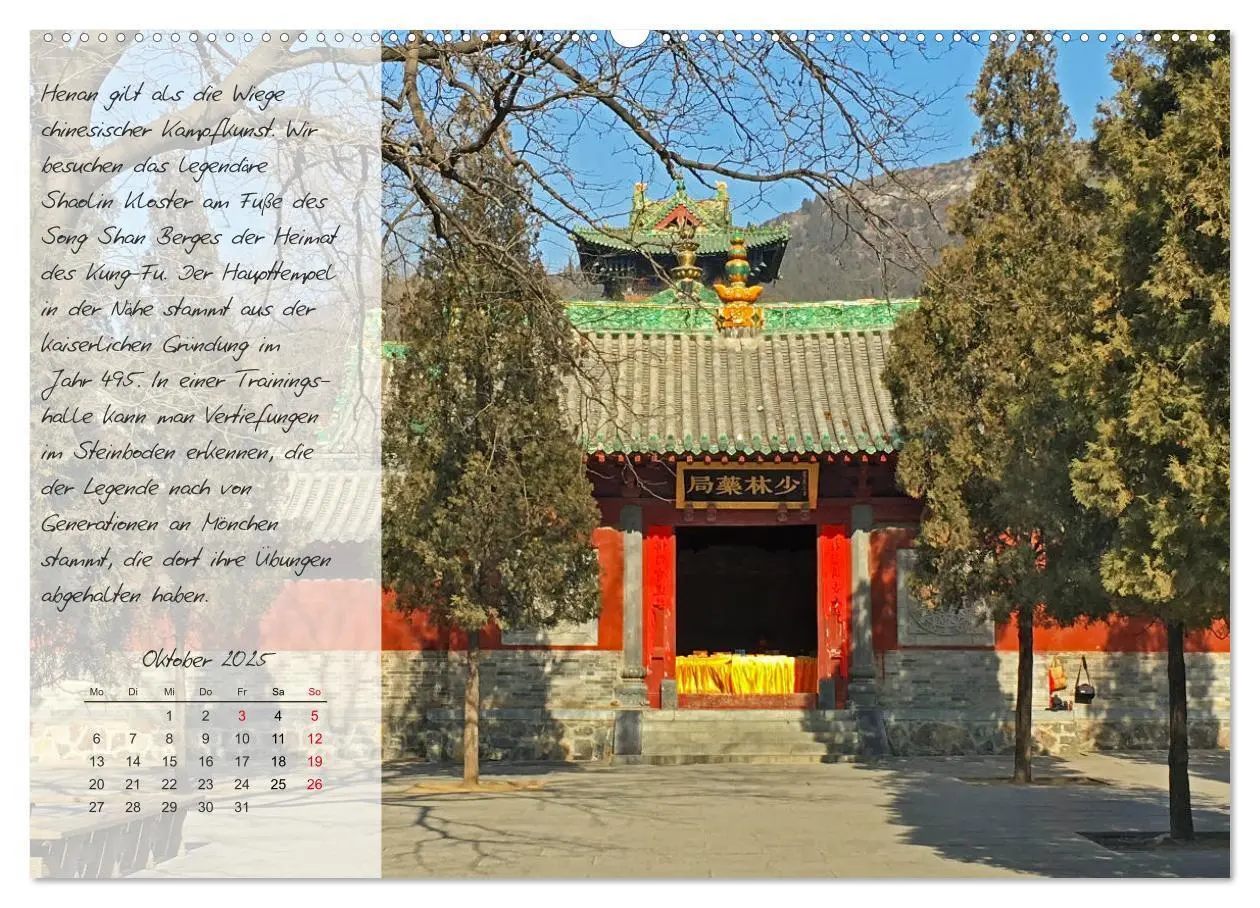 Henan gilt als die Wiege
chinesischer Kampfkunst. Wir
besuchen das legendäre
Shaolin Kloster am Fuße des
Song Shan Berges der Heimat
des Kung-Fu. Der Haupttempel
in der Nähe stammt aus der
kaiserlichen Gründung im
Jahr 495. In einer Trainings-
halle kann man Vertiefungen
im Steinboden erkennen, die
der Legende nach von
Generationen an Mönchen
stammt, die dort ihre Übungen
abgehalten haben.
局藥林少
Oktober 2025
Mo Di Mi Do Fr Sa So
1 2 3 4 5
6 7 8 9 10 11 12
13 14 15 16 17 18 19
20 21 22 23 24 25 26
27 28 29 30 31